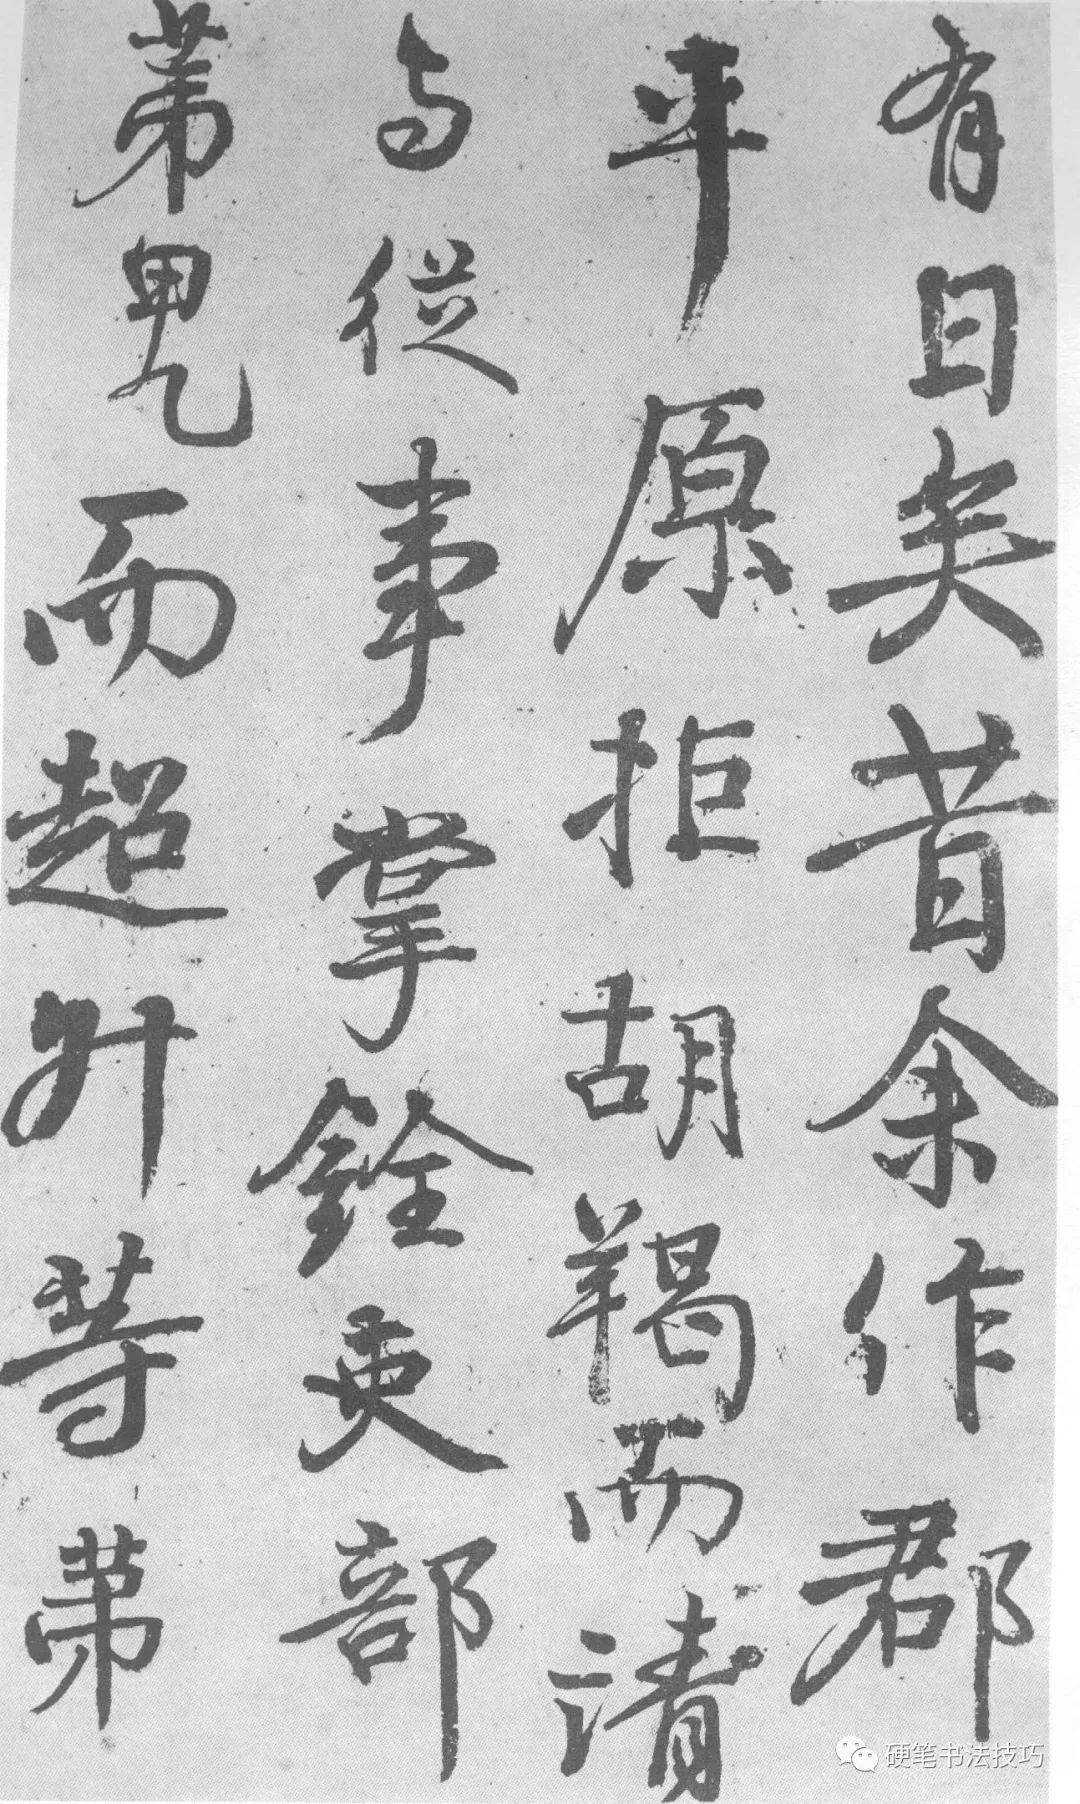 有日矣昔余作郡
平原拒胡羯而請
与從事掌銓吏部
第甲乙而超升等第
硬笔书法技巧